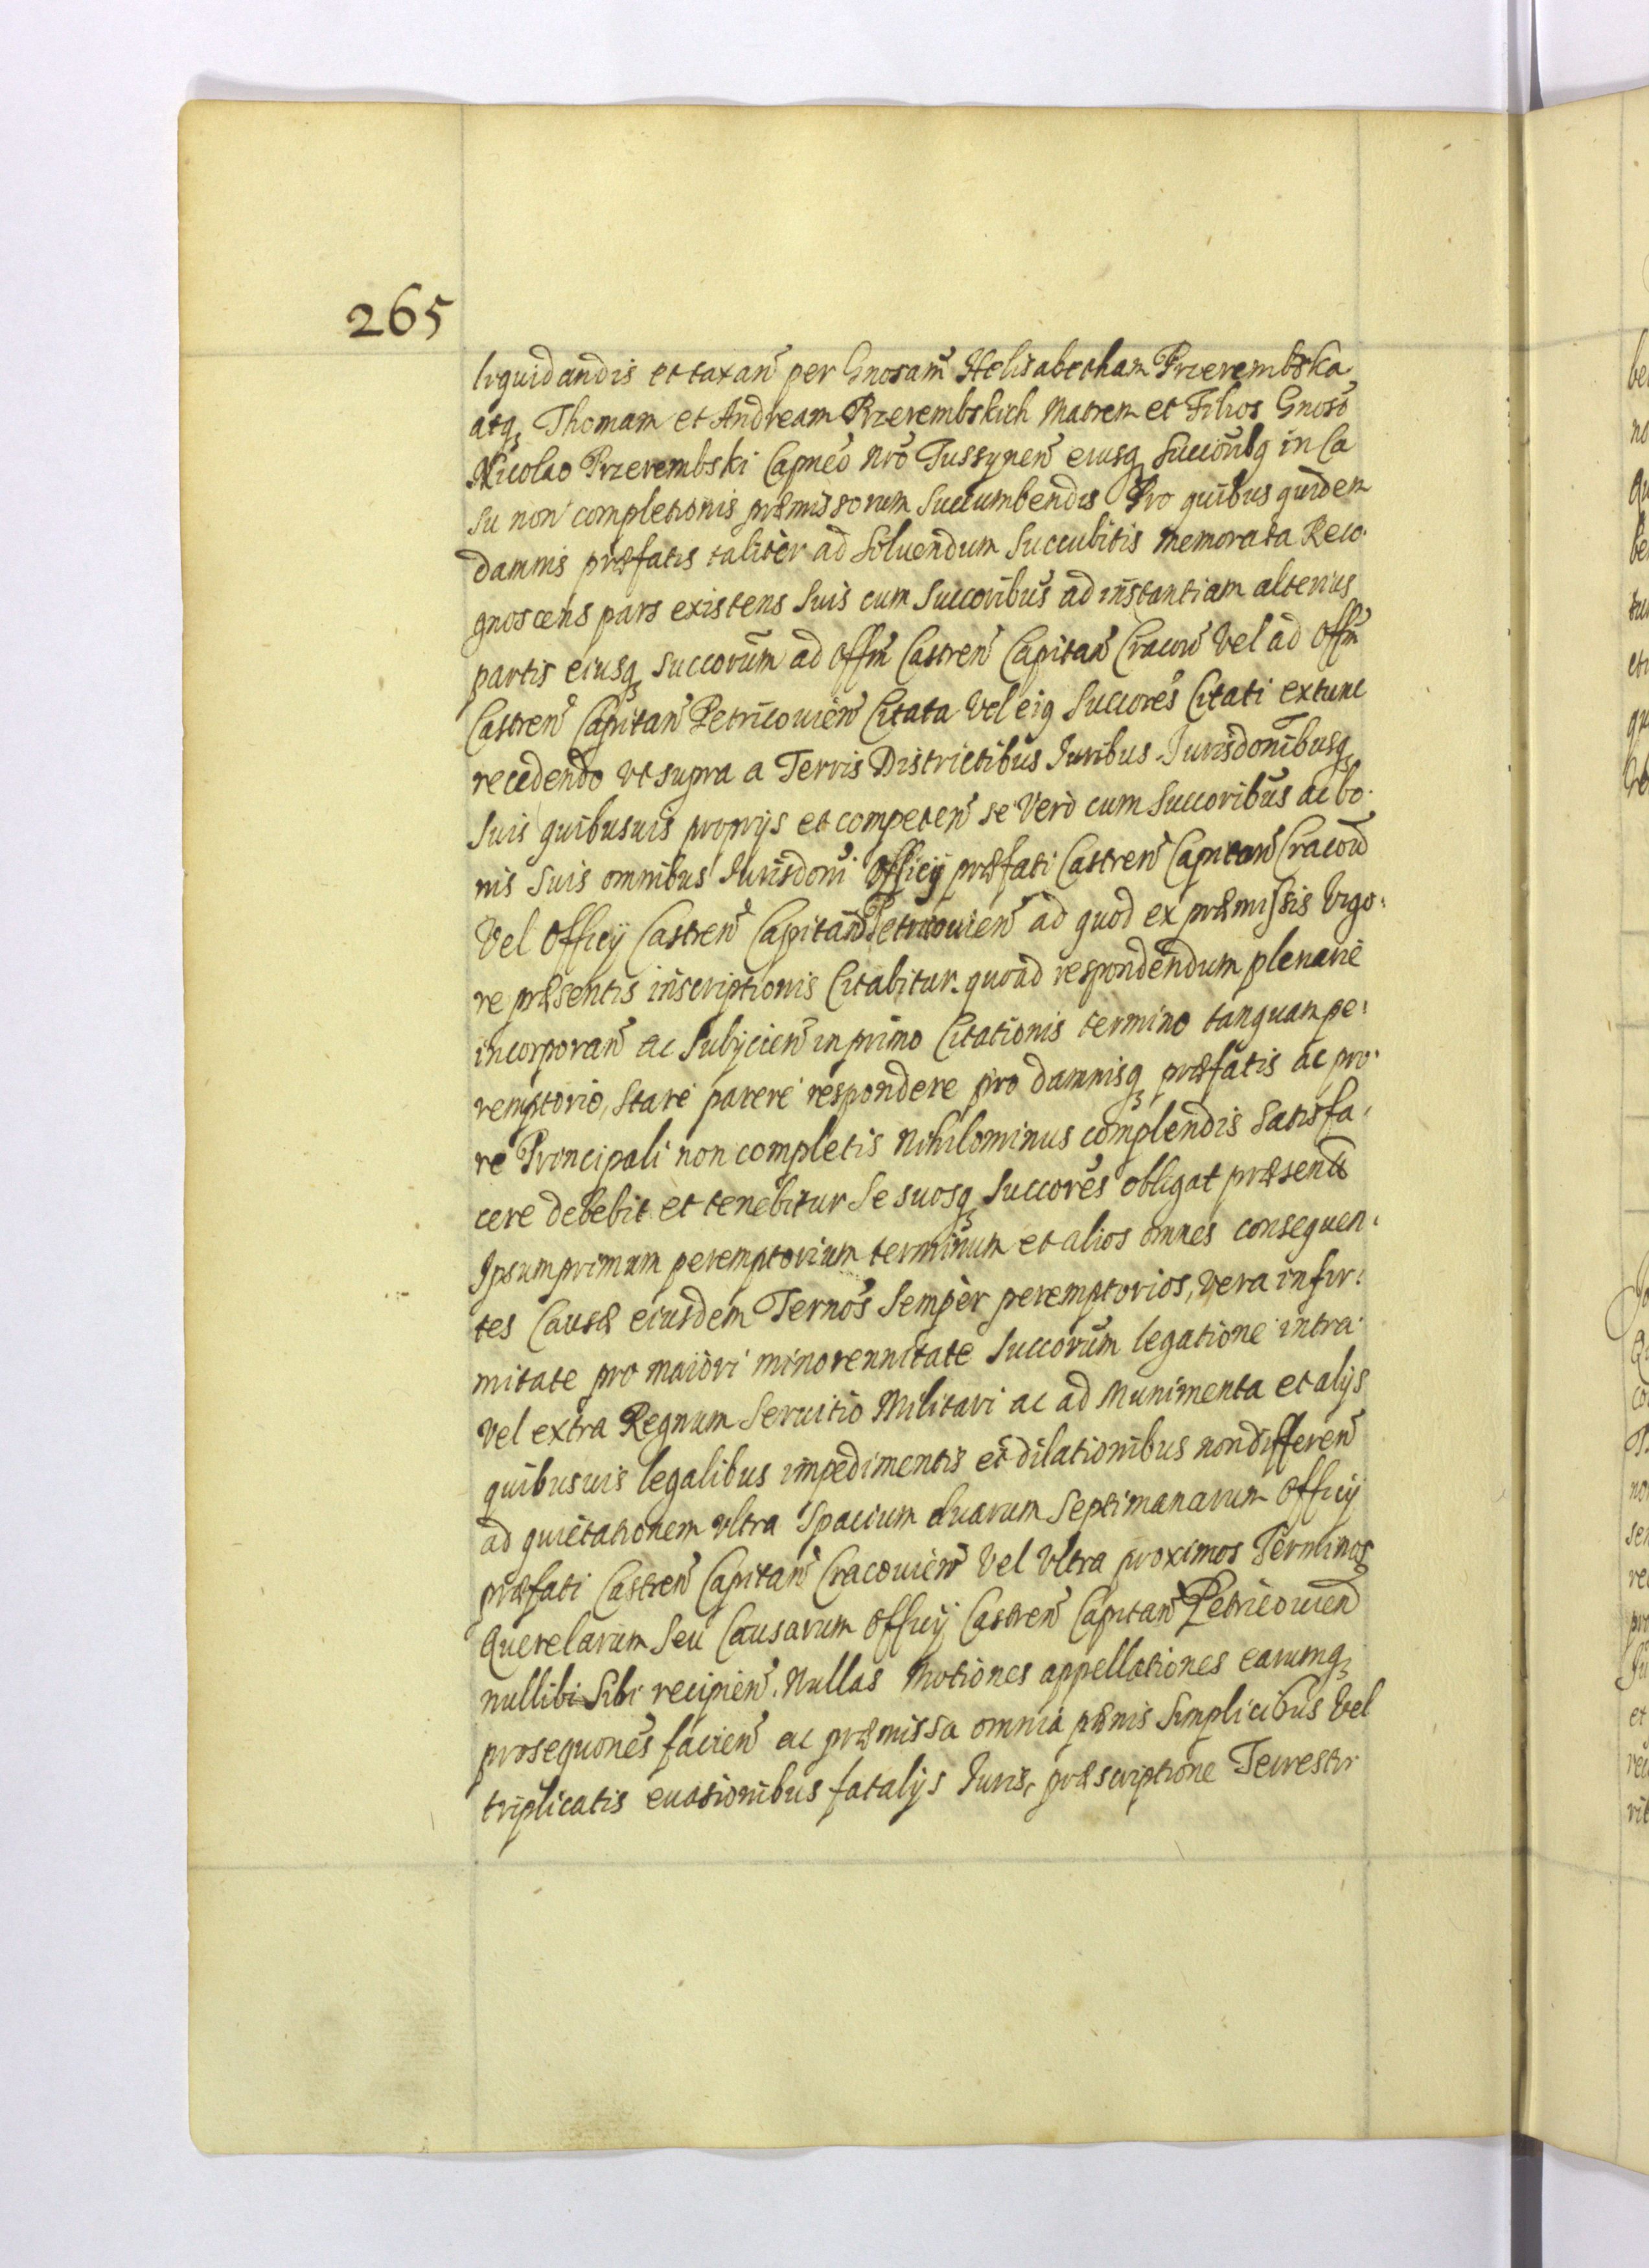 265
liquidandis et taxan̄ per Gnosam̄ Helisabetham Przerembska
atq₃ Thomam et Andream Przerembskich Matrem et Filios Gnosō
Nicolao Przerembski Capneō Nrō Tussynen̄ eiusq₃ Succoribq in Ca
su non completionis præmissorum Succumbendis Pro quibus quidem
damnis præfatis taliter ad Soluendum Succubitis memorata Reco⸗
gnoscens pars existens Suis cum Succoribus ad instantiam alterius
partis eiusq₃ Succorūm ad Offm̄ Castren̄ Capitan̄ Cracou̅ Vel ad Offm̄
Castren̄ Capitan̄ Petricouien̄ Citata Vel eiq Succores Citati extunc
recedendo vt supra a Terris Districtibus Iuribus Iurisdonibusq₃
Suis quibusuis proprijs et competen̄ se Vero cum Succoribus ac bo⸗
nis Suis omnibus Iurisdoni Officij præfati Castren̄ Capitan̄ Cracou̅
Vel Officij Castren̄ Capitan̄ Petricouien̄ ad quod ex præmissis Vigo⸗
re præsentis inscriptionis Citabitur quoad respondendum plenarie
incorporan̄ ac Subijcien̄ in primo Citationis termino tanquam pe⸗
remptorio, Stare parere respondere pro damnisq₃ præfatis ac pro
re Principali non completis Nihilominus complendis Satisfa⸗
cere debebit et tenebitur Se suosq₃ Succores obligat præsent̄
Ipsum primum peremptorium terminum et alios omnes consequen⸗
tes Causæ eiusdem Ternos Semper peremptorios, Vera infir⸗
mitate pro maiori minorennitate Succorūm legatione intra
Vel extra Regnum Seruitio Militari ac ad Munimenta et alijs
quibusuis legalibus impedimentis et dilationibus non differen̄
ad quietationem vltra Spacium duarum Septimanarum Officij
præfati Castren̄ Capitan̄ Cracouien̄ Vel Vltra proximos Terminos
Querelarum Seu Causarum Officij Castren̄ Capitan̄ Petricouien̄
nullibi Sibi recipien̄. Nullas Motiones appellationes earumq₃
prosequones facien̄ ac præmissa omnia pænis Simplicibus Vel
triplicatis euasionibus fatalijs Iuris, præscriptione Terrestr